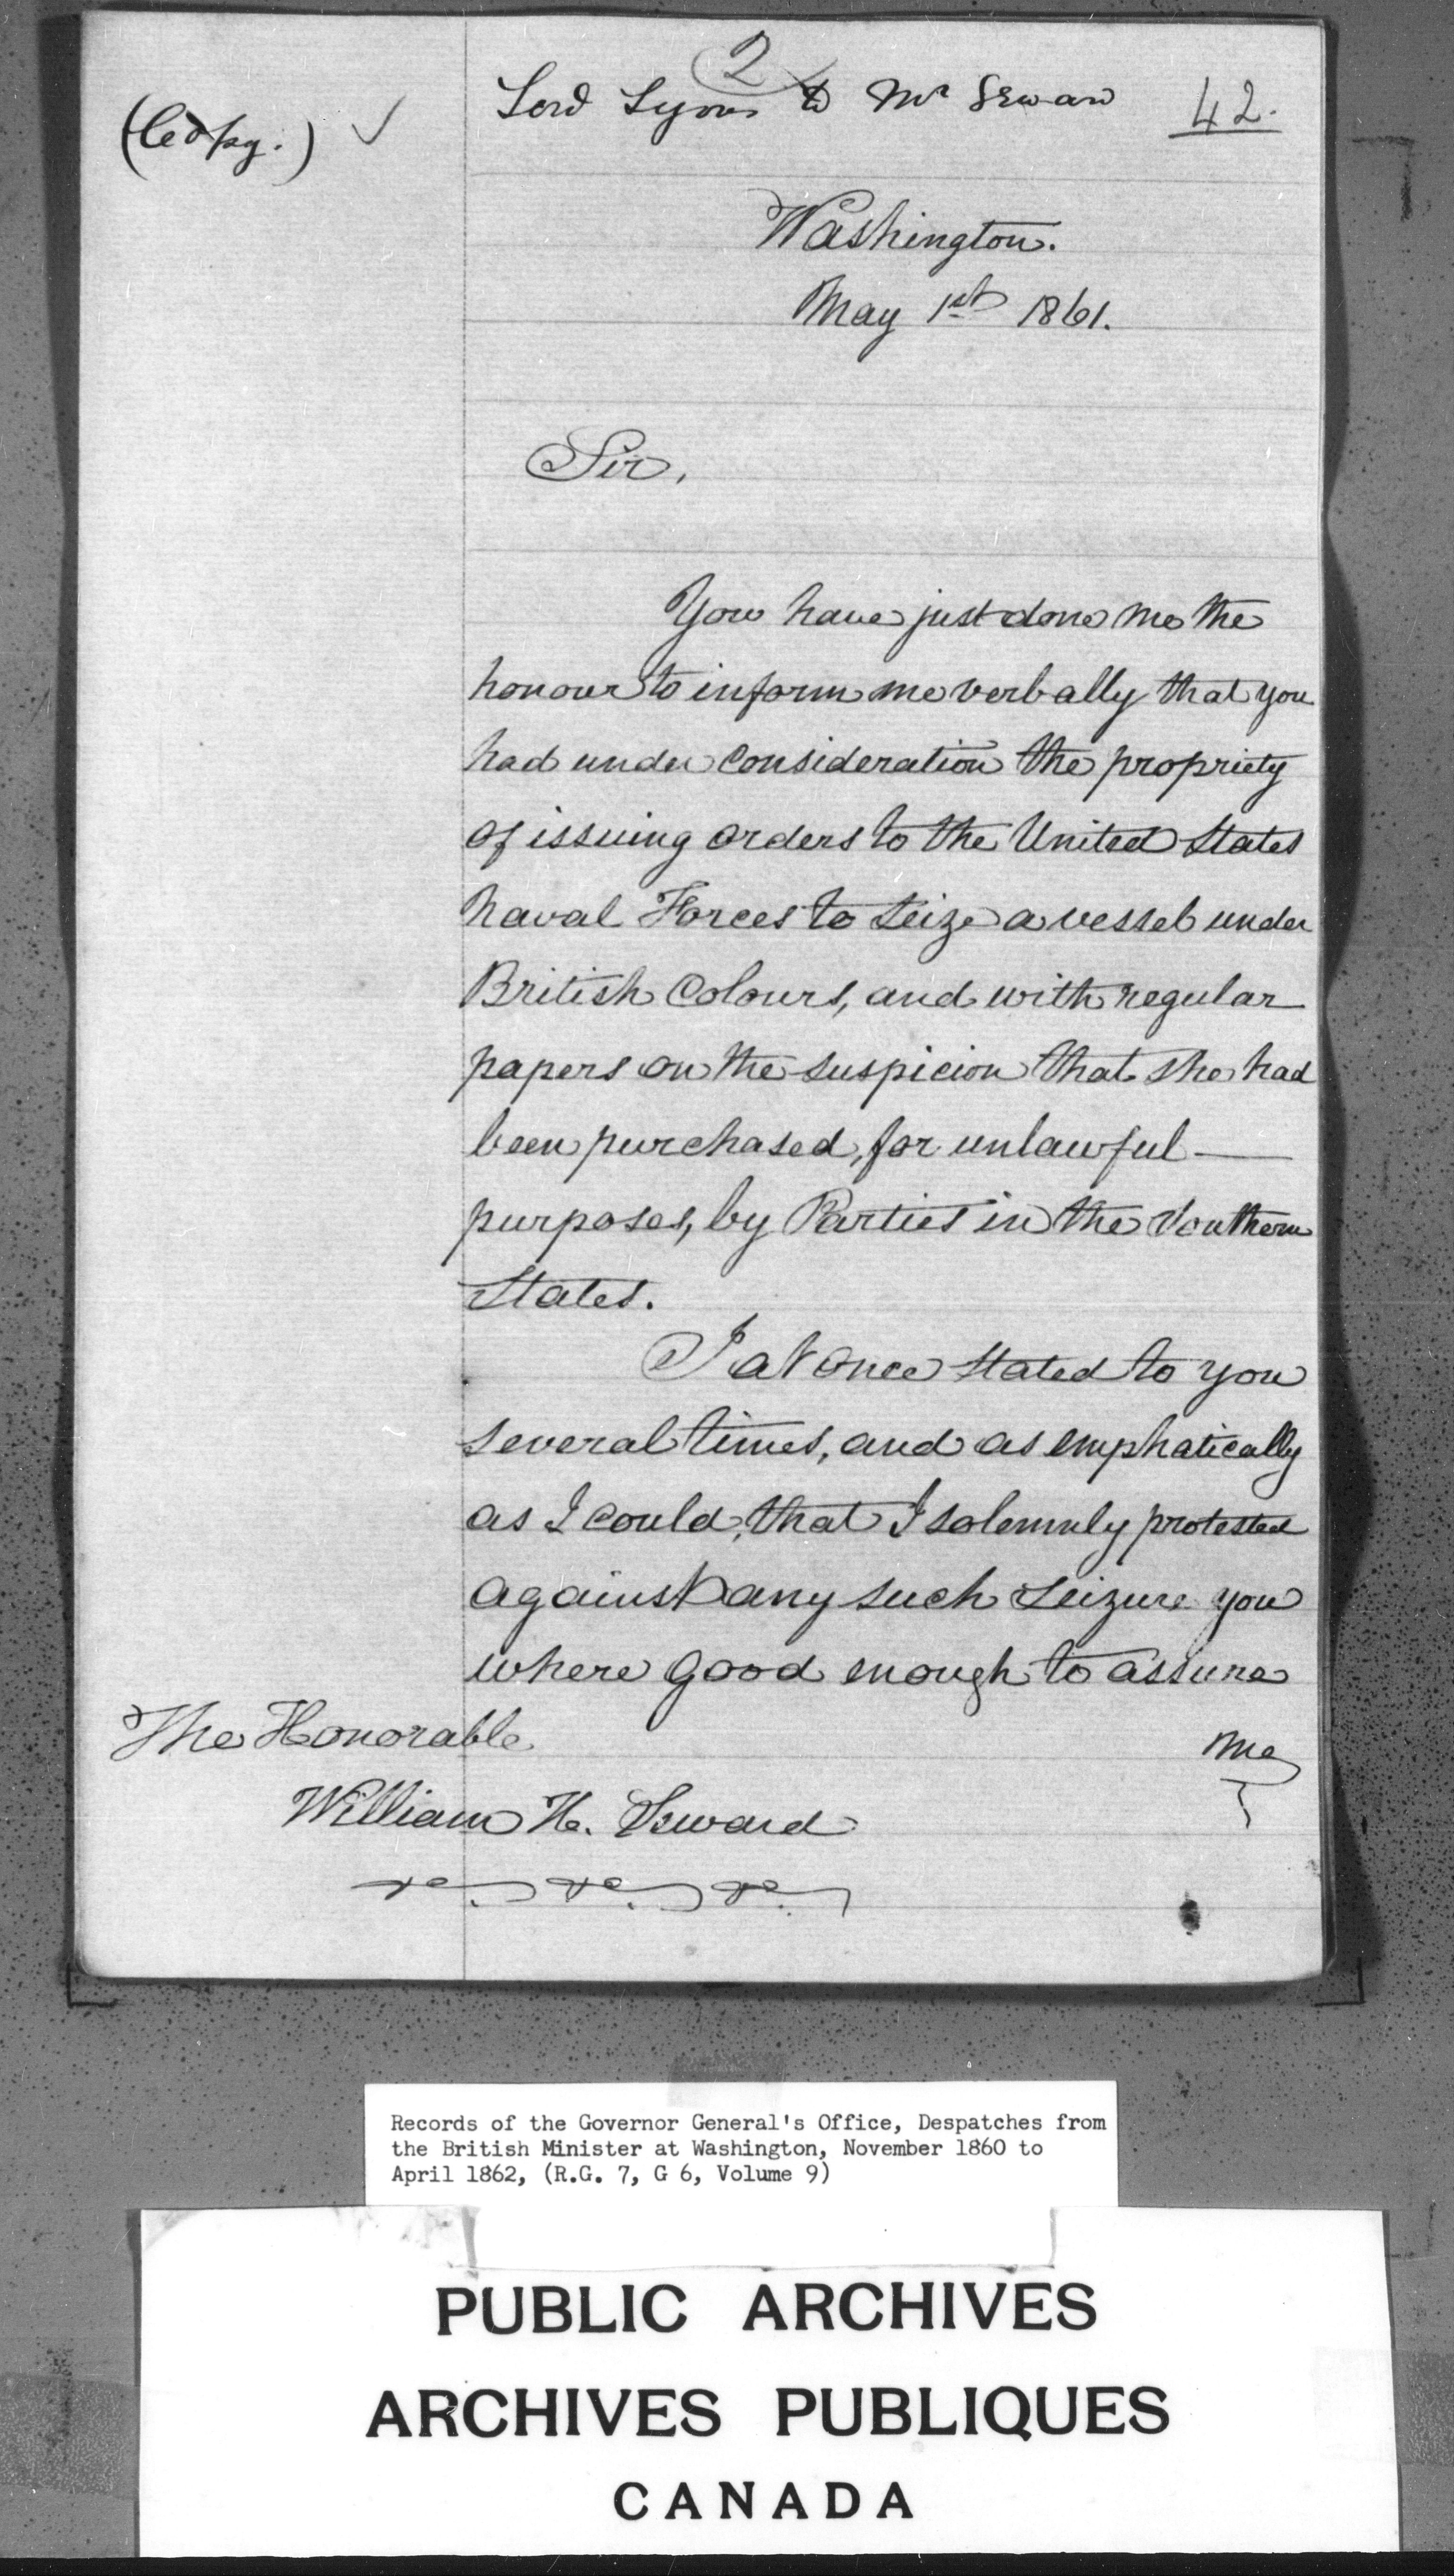 2
Lord Lyons to Mr Seward
42.
(Copy.)
Washington.
May 1st 1861.
Sir,
You have just done me the
honour to inform me verbally that you
had under consideration the propriety
of issuing orders to the United States
Naval Forces to seize a vessel under
British Colours, and with regular
papers on the suspicion that she had
been purchased, for unlawful
purposes, by Parties in the Southern
States.
I at once stated to you
several times, and as emphatically
as I could, that I solemnly protested
against any such seizure you
where good enough to assure
me
The Honorable
William H. Seward
Records of the Governor General's Office, Despatches from
the British Minister at Washington, November 1860 to
April 1862, (R.G. 7, G 6, Volume 9)
PUBLIC ARCHIVES
ARCHIVES PUBLIQUES
CANADA